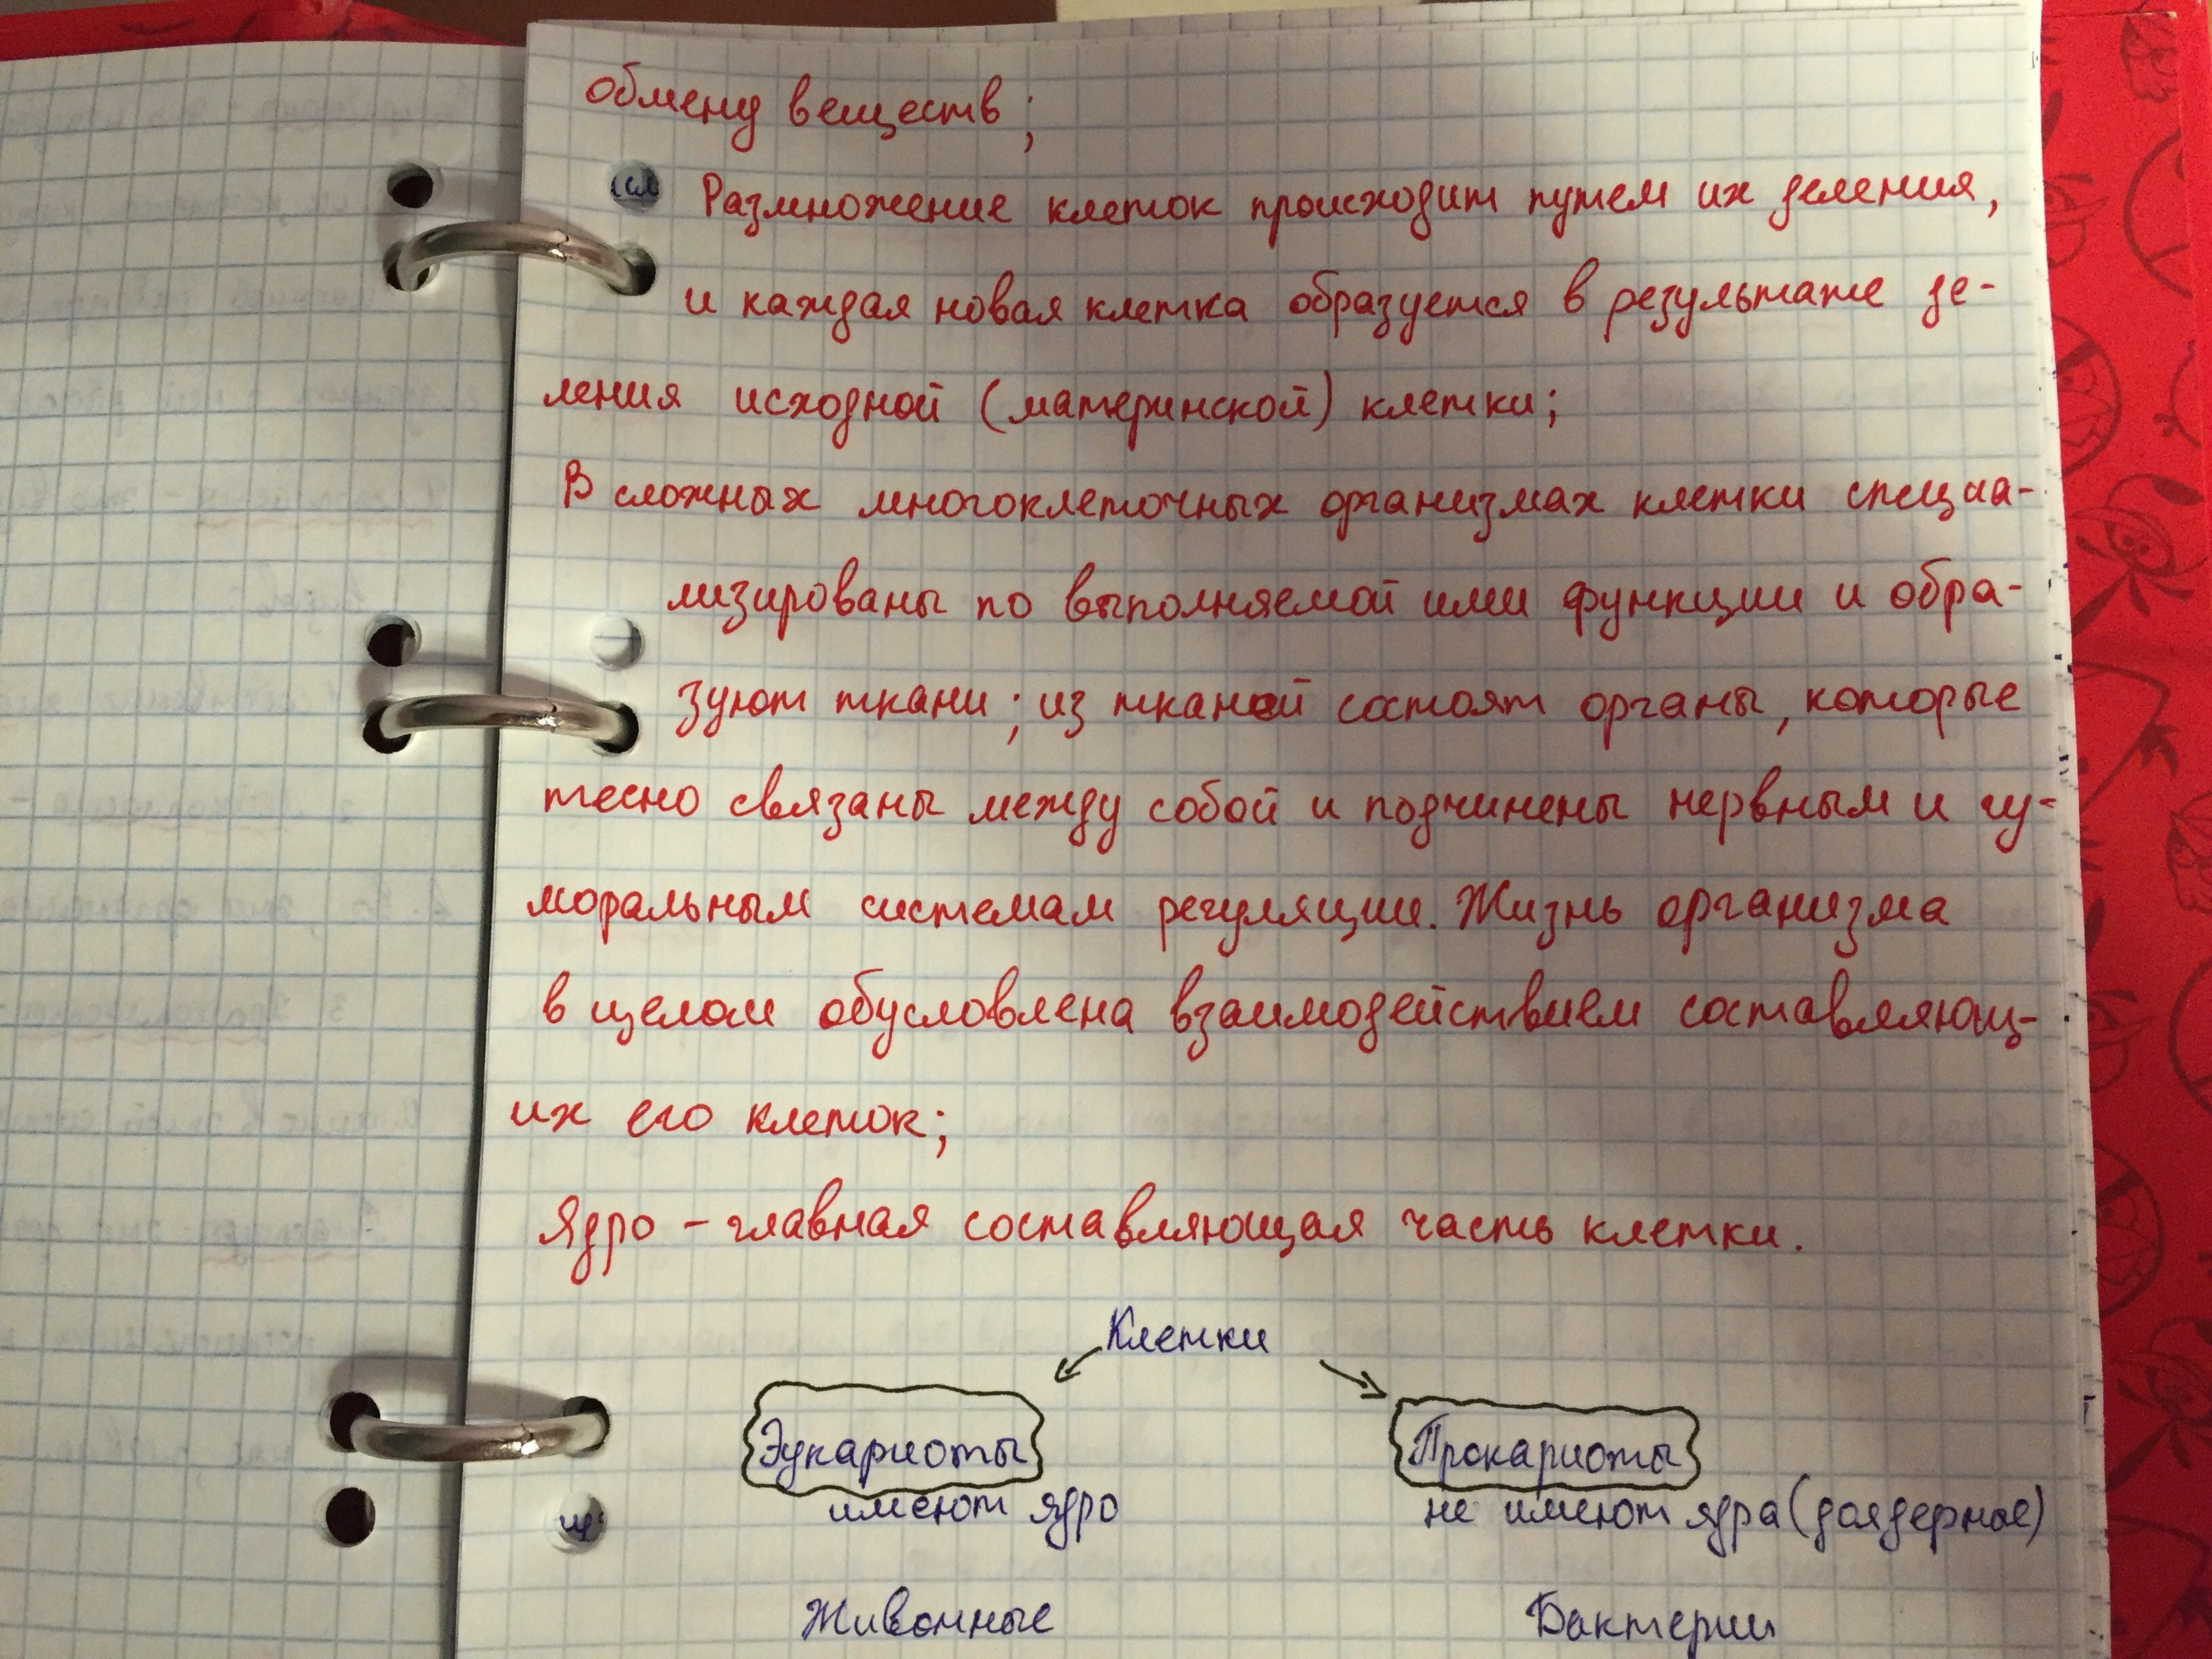 обмену веществ;
Размножение клеток происходит путем их деления,
и каждая новая клетка образуется в результате де-
ления исходной (материнской) клетки;
В сложных многоклеточных организмах клетки специа-
лизированы по выполняемой ими функции и обра-
зуют ткани; из тканей состоят органы, которые
тесно связаны между собой и подчинены нервным и гу-
моральным системам регуляции. Жизнь организма
в целом обусловлена взаимодействием составляющ-
их его клеток;
Ядро - главная составляющая часть клетки.
Клетки
Эукариоты Прокариоты
имеют ядро не имеют ядра (доядерные)
Животные Бактерии